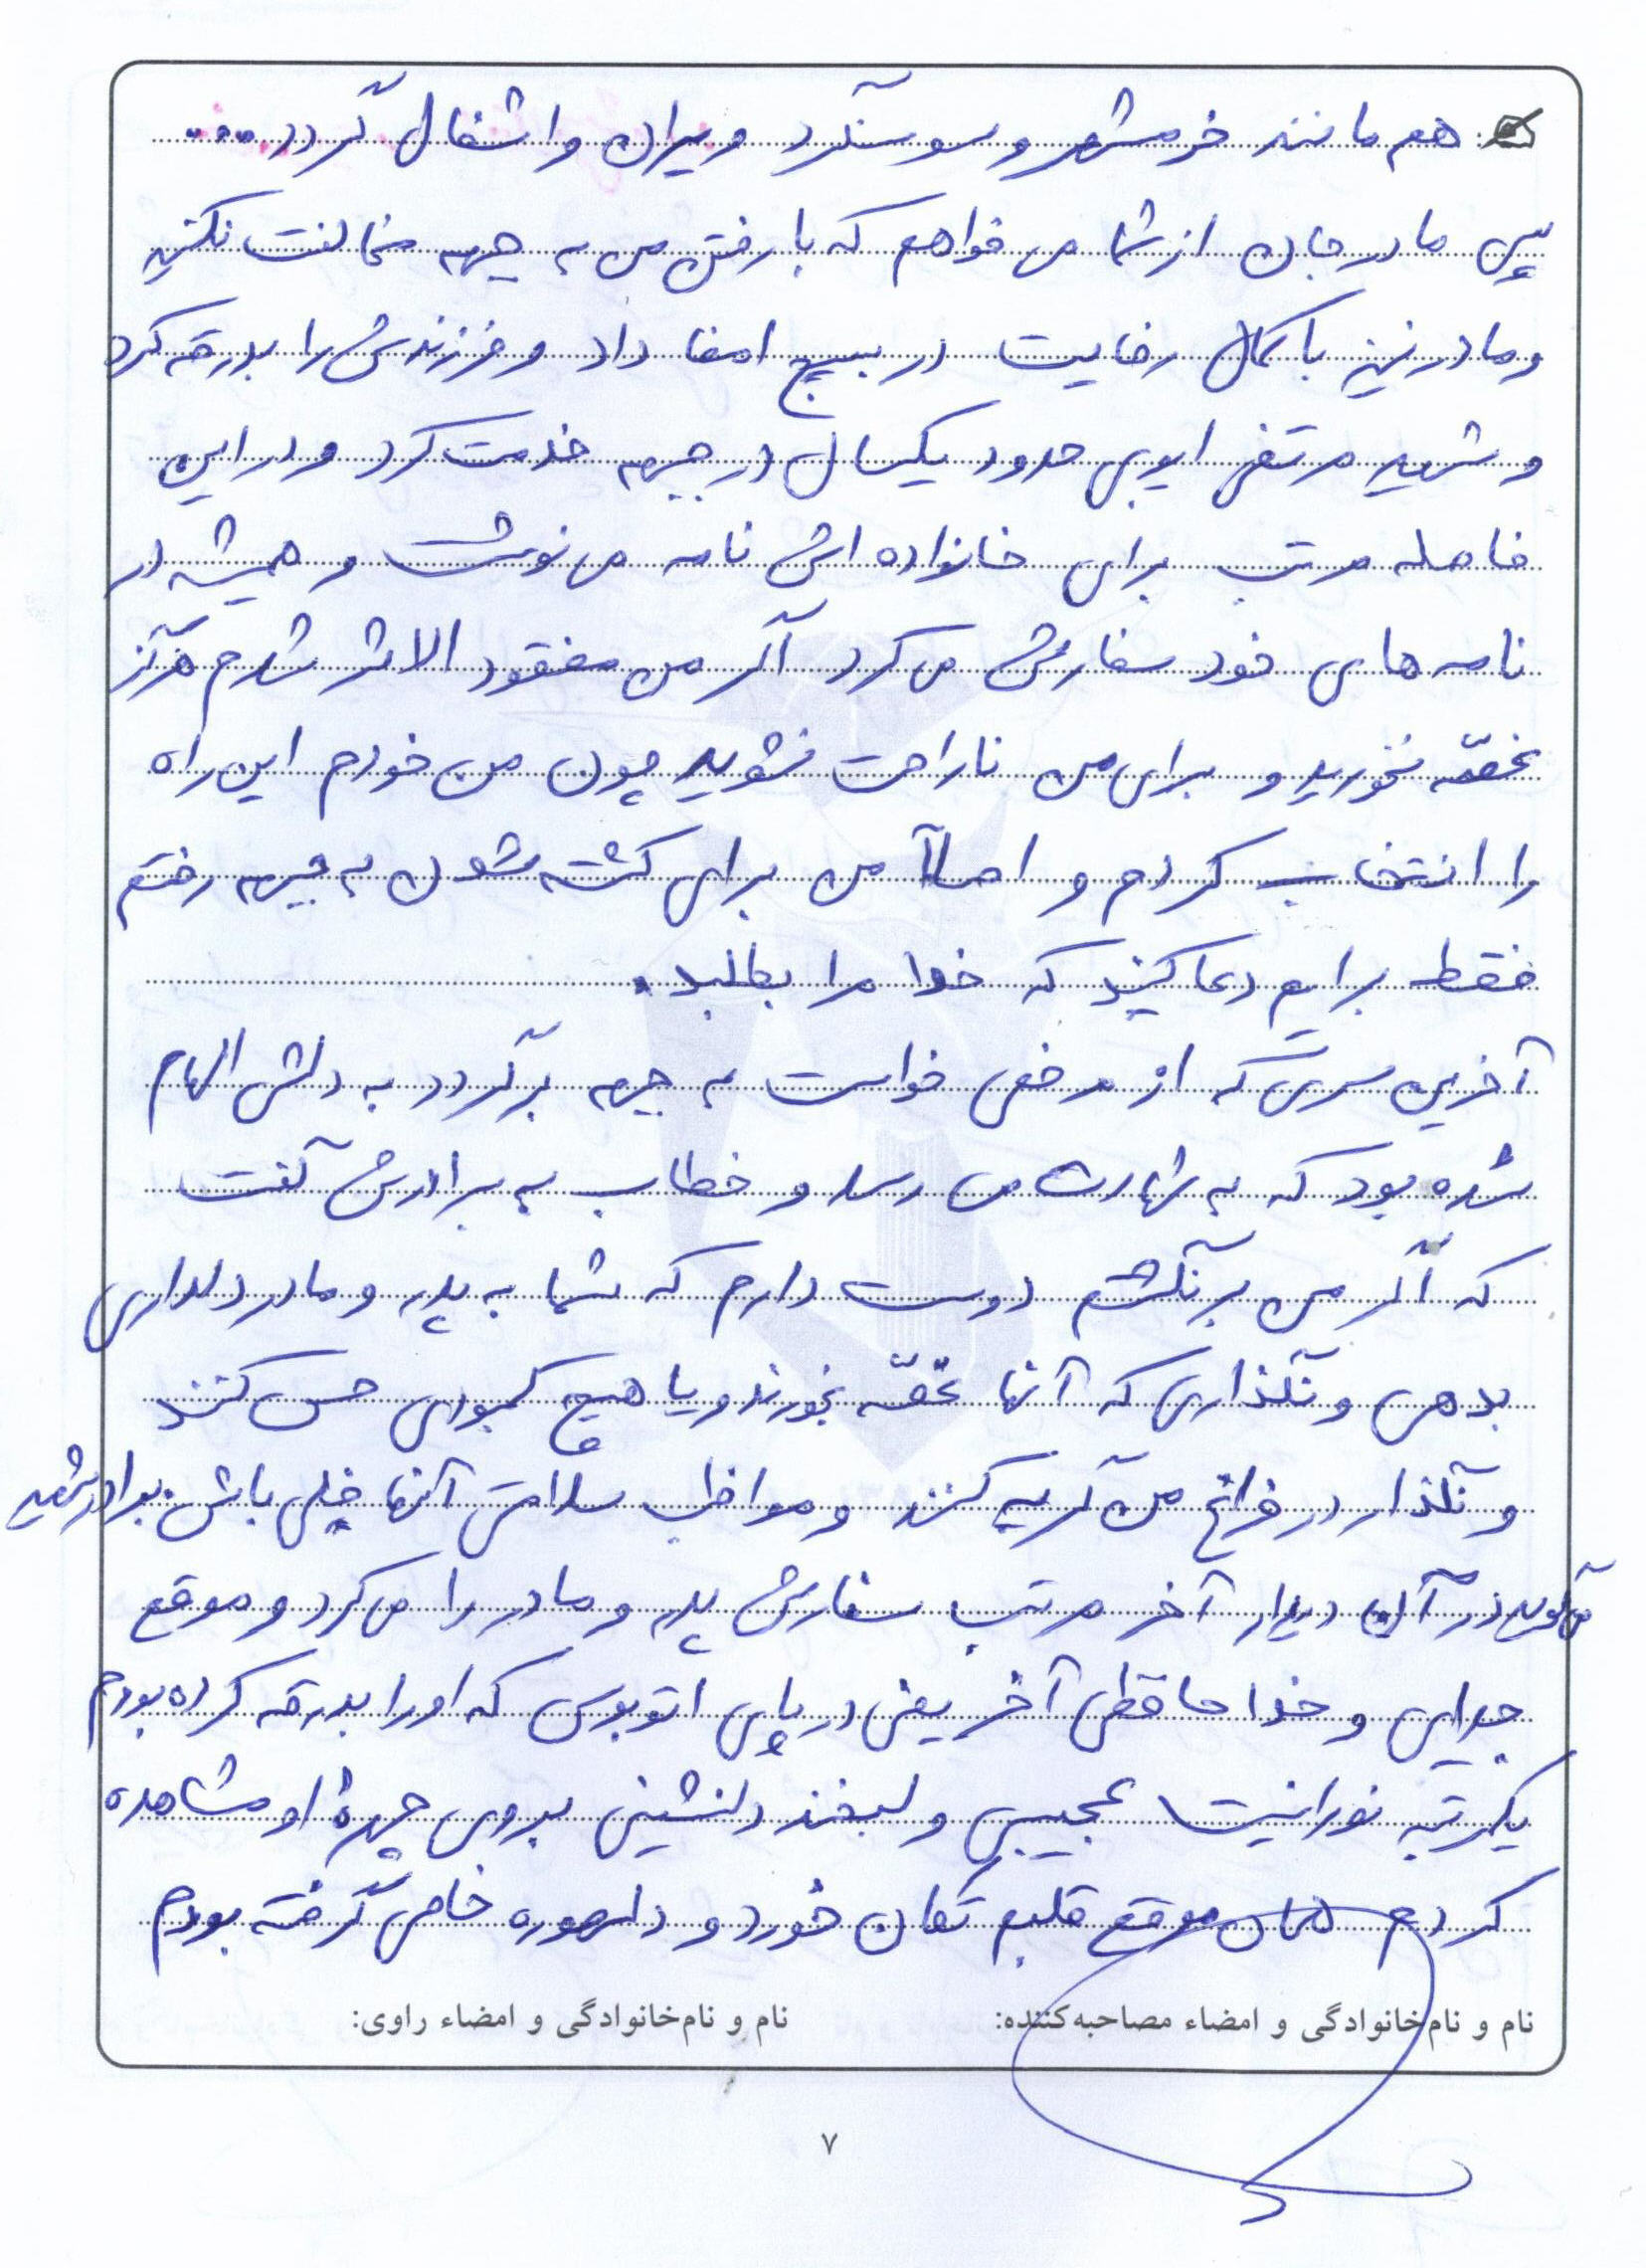 هم مانند خرمشهر و سوسنگرد ویران و اشغال گردد ....
پس مادر جان از شما می خواهم که با رفتن من به جبهه مخالفت نکنید
و مادر نیز با کمال رضایت در بسیج امضا داد و فرزندش را بدرقه کرد
و شهید مرتضی ایوبی حدود یکسال در جبهه خدمت کرد و در این
فاصله مرتب برای خانواده اش نامه می نوشت و همیشه در
نامه های خود سفارش می کرد اگر من مفقود الاثر شدم هرگز
غصّه نخورید و برای من ناراحت نشوید چون من خودم این راه
را انتخاب کردم و اصلاً من برای کشته شدن به جبهه رفتم
فقط برایم دعا کنید که خدا مرا بطلبد.
آخرین سری که از مرخصی خواست به جبهه برگردد به دلش الهام
شده بود که به شهادت می رسد و خطاب به برادرش گفت
که اگر من برنگشتم دوست دارم که شما به پدر و مادر دلداری
بدهی و نگذاری که آنها غصّه بخورند و یا هیچ کمبودی حس کنند
و نگذار در فراغ من گریه کنند و مواظب سلامتی آنها خیلی باش. برادر شهید
می گوید در آن دیدار آخر مرتب سفارش پدر و مادر را می کرد و موقع
جدایی و خدا حافظی آخر یعنی در پای اتوبوس که او را بدرقه کرده بودم
یکمرتبه نورانیت عجیبی و لبخند دلنشینی بروی چهرهٔ او مشاهده
کردم همان موقع قلبم تکان خورد و دلهوره خاصی گرفته بودم
نام و نام‌خانوادگی و امضاء مصاحبه‌کننده: نام و نام‌خانوادگی و امضاء راوی:
۷